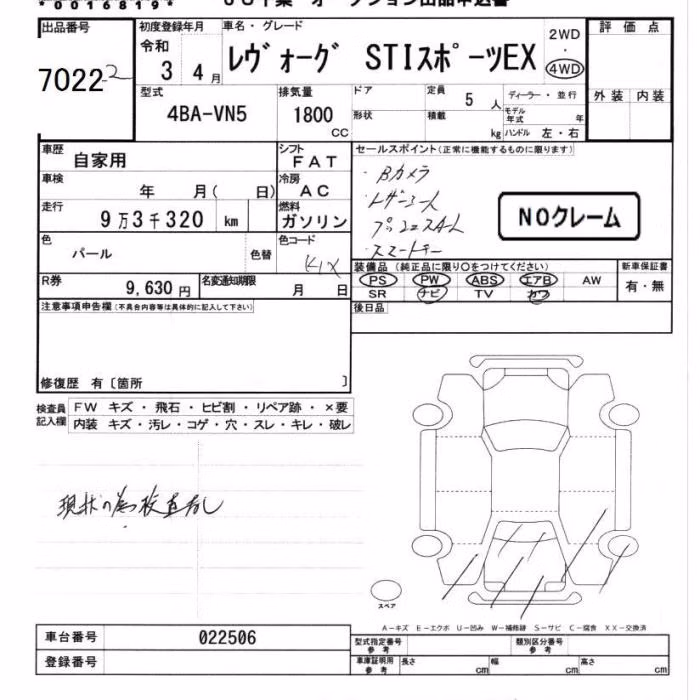 *00168 19*
出品番号
70222
初度登録年月
令和
3 4月
車名・グレード
レヴォーグ STIスポーツEX
2WD
・
4WD
評価点
外装 内装
型式
4BA-VN5
排気量
1800
cc
ドア
形状
定員
5 人
積載
kg
ディーラー・並行
モデル年式 年
ハンドル 左・右
車歴
自家用
シフト
FAT
車検
年 月( 日)
冷房
AC
走行
9万3千320 km
燃料
ガソリン
色
パール
色替
色コード
R券
9,630 円
名変通知期限
月 日
セールスポイント(正常に機能するものに限ります)
・Bカメラ
・スマートキー
NOクレーム
装備品(純正品に限り○をつけてください)
PS PW ABS エアB AW
SR ナビ TV カワ
新車保証書
有・無
後日品
注意事項申告欄(不具合内容等は具体的に記入して下さい)
修復歴 有〔箇所 〕
検査員記入欄
FW キズ・飛石・ヒビ割・リペア跡・×要
内装 キズ・汚レ・コゲ・穴・スレ・キレ・破レ
現状の為検査なし
スペア
A-キズ E-エクボ U-凹み W-補修跡 S-サビ C-腐食 XX-交換済
車台番号
022506
登録番号
型式指定番号
参考
類別区分番号
参考
車庫証明用
参考
長さ cm
幅 cm
高さ cm